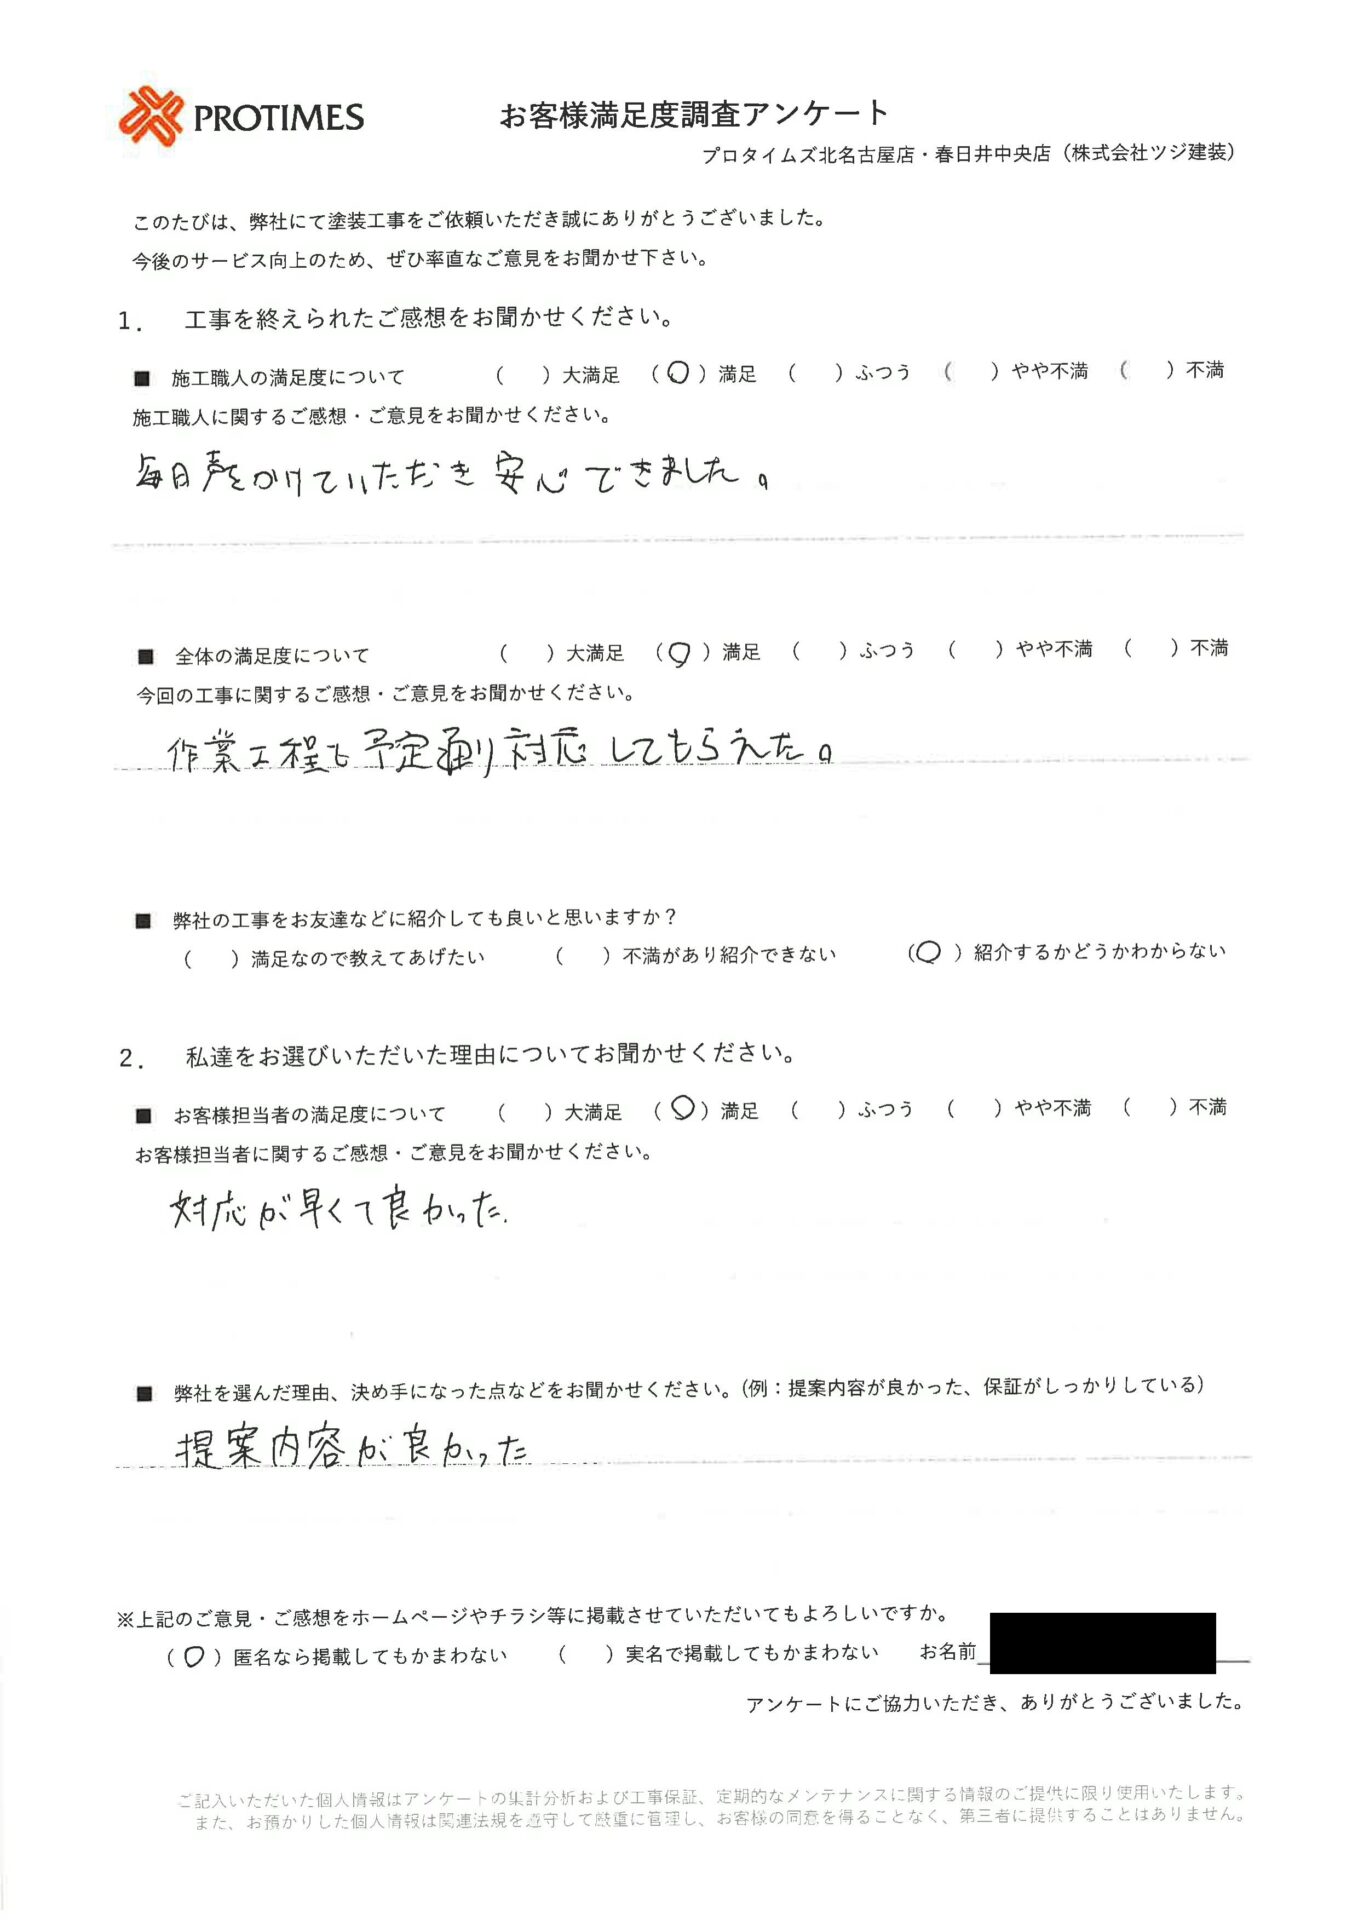 PROTIMES
お客様満足度調査アンケート
プロタイムズ北名古屋店・春日井中央店（株式会社ツジ建装）
このたびは、弊社にて塗装工事をご依頼いただき誠にありがとうございました。
今後のサービス向上のため、ぜひ率直なご意見をお聞かせ下さい。
1． 工事を終えられたご感想をお聞かせください。
■ 施工職人の満足度について （ ）大満足 （○）満足 （ ）ふつう （ ）やや不満 （ ）不満
施工職人に関するご感想・ご意見をお聞かせください。
毎日声をかけていただき安心できました。
■ 全体の満足度について （ ）大満足 （○）満足 （ ）ふつう （ ）やや不満 （ ）不満
今回の工事に関するご感想・ご意見をお聞かせください。
作業工程も予定通り対応してもらえた。
■ 弊社の工事をお友達などに紹介しても良いと思いますか？
（ ）満足なので教えてあげたい （ ）不満があり紹介できない （○）紹介するかどうかわからない
2． 私達をお選びいただいた理由についてお聞かせください。
■ お客様担当者の満足度について （ ）大満足 （○）満足 （ ）ふつう （ ）やや不満 （ ）不満
お客様担当者に関するご感想・ご意見をお聞かせください。
対応が早くて良かった.
■ 弊社を選んだ理由、決め手になった点などをお聞かせください。（例：提案内容が良かった、保証がしっかりしている）
提案内容が良かった
※上記のご意見・ご感想をホームページやチラシ等に掲載させていただいてもよろしいですか。
（○）匿名なら掲載してもかまわない （ ）実名で掲載してもかまわない お名前
アンケートにご協力いただき、ありがとうございました。
ご記入いただいた個人情報はアンケートの集計分析および工事保証、定期的なメンテナンスに関する情報のご提供に限り使用いたします。
また、お預かりした個人情報は関連法規を遵守して厳重に管理し、お客様の同意を得ることなく、第三者に提供することはありません。